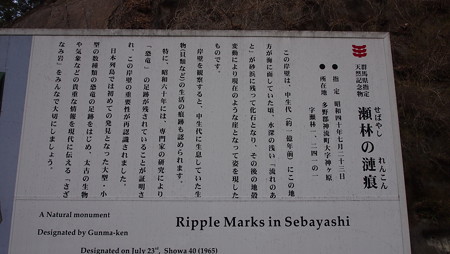 群馬県指定
天然記念物
瀬林の漣痕
せばやし　れんこん
● 指定 昭和四十年七月二十三日
● 所在地 多野郡神流町大字神ヶ原
字瀬林一、二四一の一
この岸壁は、中生代(約一億年前)にこの地
方が海に面していた頃、水深の浅い「流れのあ
と」が砂浜に残って化石となり、その後の地殻
変動により現在のような崖となって姿を現した
ものです。
岸壁を観察すると、中生代に生息していた生
物(貝類など)の生活の痕跡も認められます。
特に、昭和六十年には、専門家の研究により
「恐竜」の足跡が残されていることが証明さ
れ、この岸壁の重要性が再認識されました。
日本列島では初めての発見となった大型・小
型の数種類の恐竜の足跡をはじめ、太古の生物
や気象などの貴重な情報を現代に伝える「さざ
なみ岩」をみんなで大切にしましょう。
A Natural monument
Ripple Marks in Sebayashi
Designated by Gunma-ken
Designated on July 23rd, Showa 40 (1965)